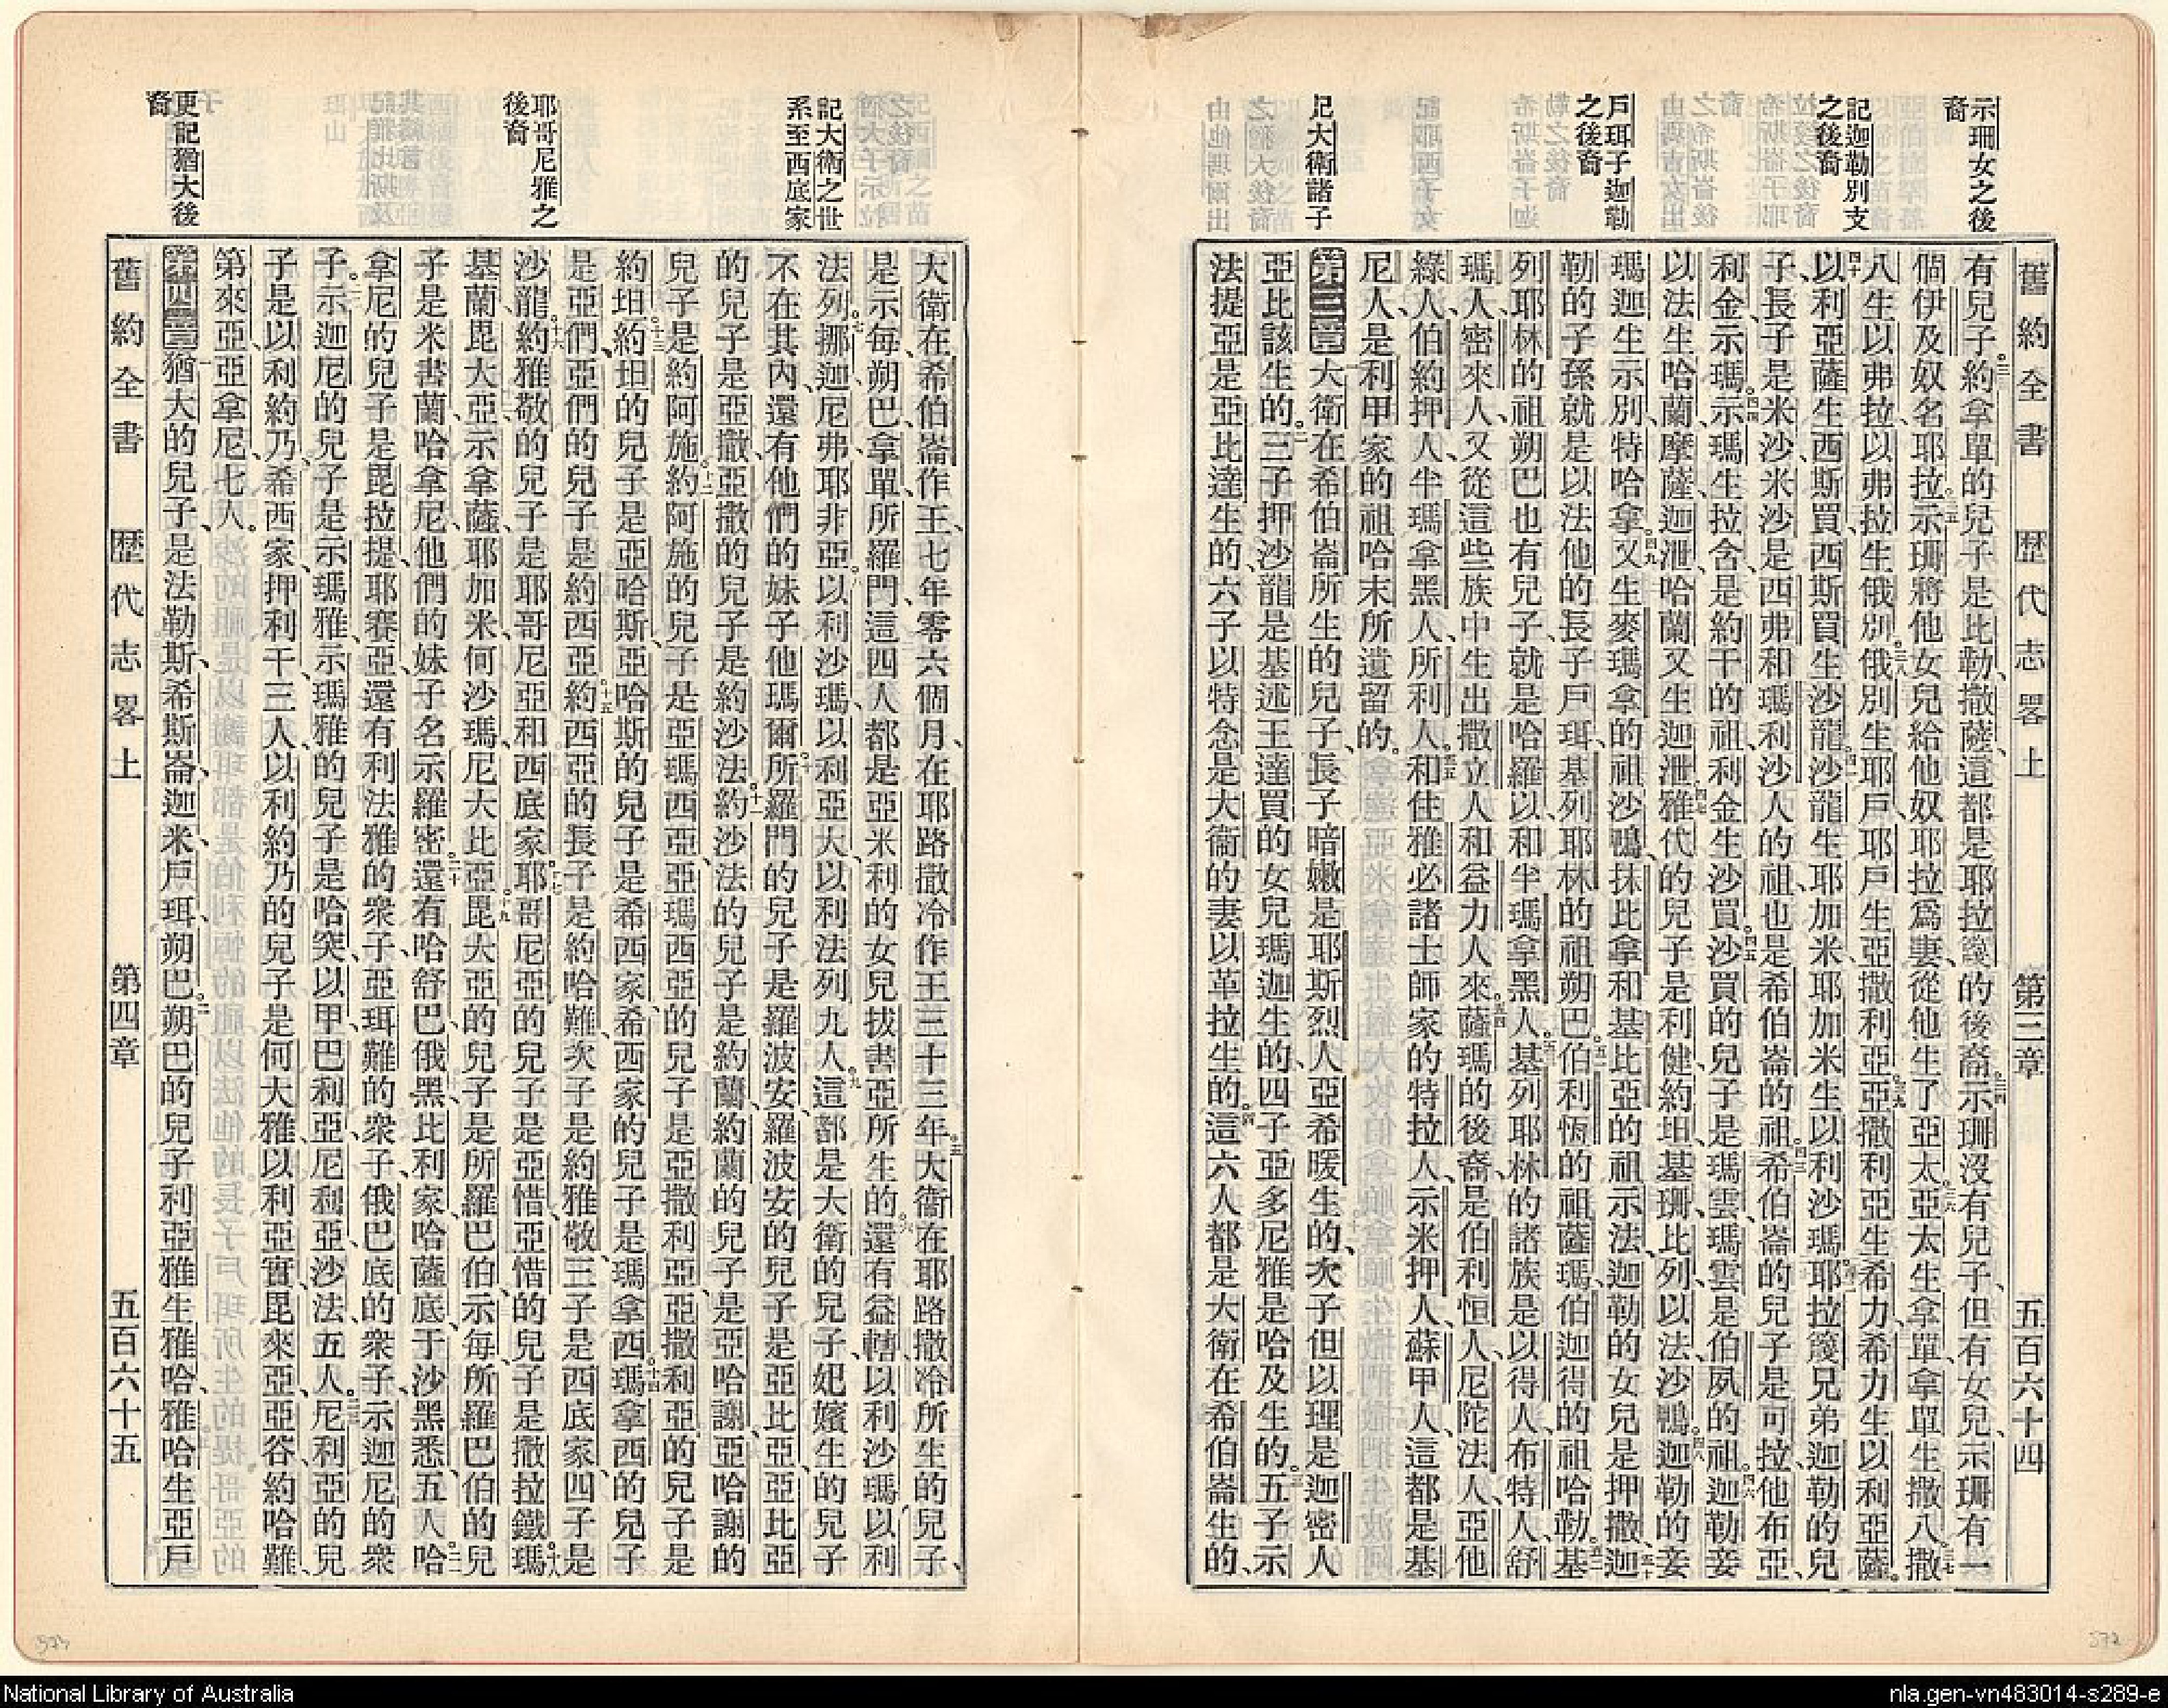 舊約全書 歷代志畧上 第三章 五百六十四
示珊女之後
裔
記迦勒別支
之後裔
戶珥子迦勒
之後裔
記大衛諸子
有兒子。三三約拿單的兒子是比勒、撒薩、這都是耶拉篾的後裔。三四示珊沒有兒子、但有女兒、示珊有一
個伊及奴名耶拉。三五示珊將他女兒給他奴耶拉爲妻、從他生了亞太。三六亞太生拿單、拿單生撒八。三七撒
八生以弗拉、以弗拉生俄別。三八俄別生耶戶、耶戶生亞撒利亞。三九亞撒利亞生希力、希力生以利亞薩。
四十以利亞薩生西斯買、西斯買生沙龍。四一沙龍生耶加米、耶加米生以利沙瑪。四二耶拉篾兄弟迦勒的兒
子、長子是米沙、米沙是西弗和瑪利沙人的祖也是希伯崙的祖。四三希伯崙的兒子是可拉、他布亞、
利金、示瑪。四四示瑪生拉含、是約干的祖、利金生沙買。四五沙買的兒子是瑪雲、瑪雲是伯夙的祖。四六迦勒妾
以法生哈蘭、摩薩、迦泄、哈蘭又生迦泄。四七雅代的兒子是利健、約坦、基珊、比列、以法、沙鴨。四八迦勒的妾
瑪迦生示別、特哈拿。四九又生麥瑪拿的祖沙鴨、抹比拿和基比亞的祖示法、迦勒的女兒是押撒。五十迦
勒的子孫就是以法他的長子戶珥、基列耶林的祖朔巴。五一伯利恆的祖薩瑪、伯迦得的祖哈勒。五二基
列耶林的祖朔巴也有兒子、就是哈羅以和半瑪拿黑人。五三基列耶林的諸族是以得人、布特人、舒
瑪人、密來人、又從這些族中生出撒立人和益力人來。五四薩瑪的後裔、是伯利恒人、尼陀法人、亞他
綠人、伯約押人、半瑪拿黑人、所利人。五五和住雅必諸士師家的特拉人、示米押人、蘇甲人、這都是基
尼人、是利甲家的祖哈末所遺留的。
第三章一大衛在希伯崙所生的兒子、長子暗嫩是耶斯烈人亞希暖生的、次子但以理是迦密人
亞比該生的。二三子押沙龍是基述王達買的女兒瑪迦生的、四子亞多尼雅是哈及生的。三五子示
法提亞是亞比達生的、六子以特念是大衞的妻以革拉生的。四這六人都是大衛在希伯崙生的、
舊約全書 歷代志畧上 第四章 五百六十五
記大衛之世
系至西底家
耶哥尼雅之
後裔
更記猶大後
裔
大衛在希伯崙作王、七年零六個月、在耶路撒冷作王三十三年。五大衞在耶路撒冷所生的兒子、
是示每、朔巴、拿單、所羅門、這四人都是亞米利的女兒拔書亞所生的。六還有益轄、以利沙瑪、以利
法列。七挪迦、尼弗、耶非亞。八以利沙瑪、以利亞大、以利法列九人。九這都是大衛的兒子、妃嬪生的兒子
不在其內、還有他們的妹子他瑪爾。十所羅門的兒子是羅波安、羅波安的兒子是亞比亞、亞比亞
的兒子是亞撒、亞撒的兒子是約沙法。十一約沙法的兒子是約蘭、約蘭的兒子是亞哈謝、亞哈謝的
兒子是約阿施。十二約阿施的兒子是亞瑪西亞、亞瑪西亞的兒子是亞撒利亞、亞撒利亞的兒子是
約坦。十三約坦的兒子是亞哈斯、亞哈斯的兒子是希西家、希西家的兒子是瑪拿西。十四瑪拿西的兒子
是亞們、亞們的兒子是約西亞。十五約西亞的長子是約哈難、次子是約雅敬、三子是西底家、四子是
沙龍。十六約雅敬的兒子是耶哥尼亞和西底家。十七耶哥尼亞的兒子是亞惜、亞惜的兒子是撒拉鐵。十八瑪
基蘭、毘大亞、示拿薩、耶加米、何沙瑪、尼大比亞。十九毘大亞的兒子是所羅巴伯、示每、所羅巴伯的兒
子是米書蘭、哈拿尼、他們的妹子名示羅密。二十還有哈舒巴、俄黑、比利家、哈薩底、于沙黑悉五人。二一哈
拿尼的兒子是毘拉提、耶賽亞、還有利法雅的衆子、亞珥難的衆子、俄巴底的衆子、示迦尼的衆
子。二二示迦尼的兒子是示瑪雅、示瑪雅的兒子是哈突、以甲、巴利亞、尼利亞、沙法五人。二三尼利亞的兒
子是以利約乃、希西家、押利干三人。二四以利約乃的兒子是何大雅、以利亞實、毘來亞、亞谷、約哈難、
第來亞、亞拿尼、七人。
第四章一猶大的兒子、是法勒斯、希斯崙、迦米、戶珥、朔巴。二朔巴的兒子利亞雅生雅哈、雅哈生亞戶
National Library of Australia
nla.gen-vn483014-s289-e